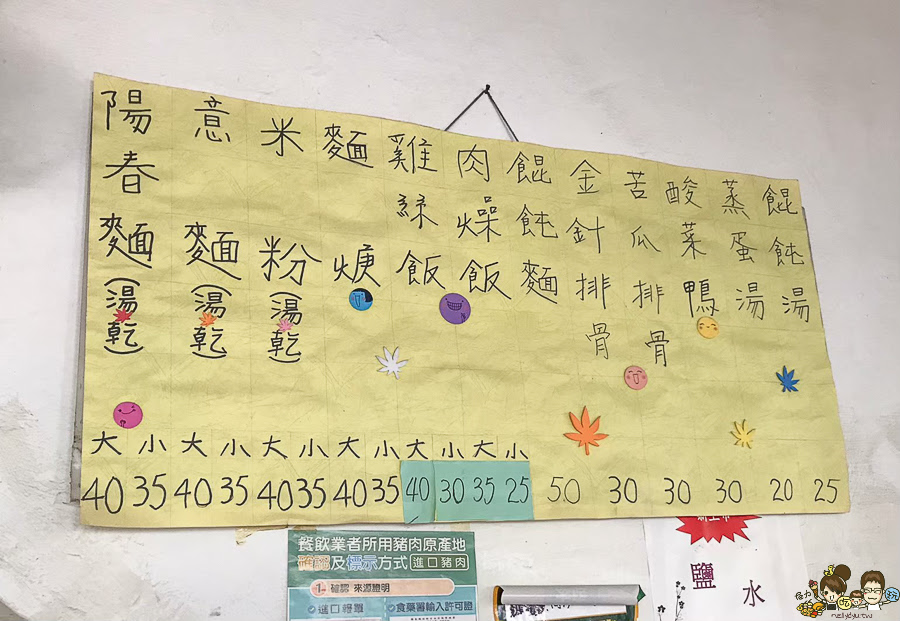 陽春麵(湯乾)
意麵(湯乾)
米粉(湯乾)
麵焿
雞絲飯
肉燥飯
餛飩麵
金針排骨
苦瓜排骨
酸菜鴨
蒸蛋湯
餛飩湯
大 小 大 小 大 小 大 小 大 小 大 小
40 35 40 35 40 35 40 35 40 30 35 25 50 30 30 30 20 25
餐飲業者所用豬肉原產地
確認及標示方式 進口豬肉
1 確認 來源證明
進口報單 食藥署輸入許可證
鹽水